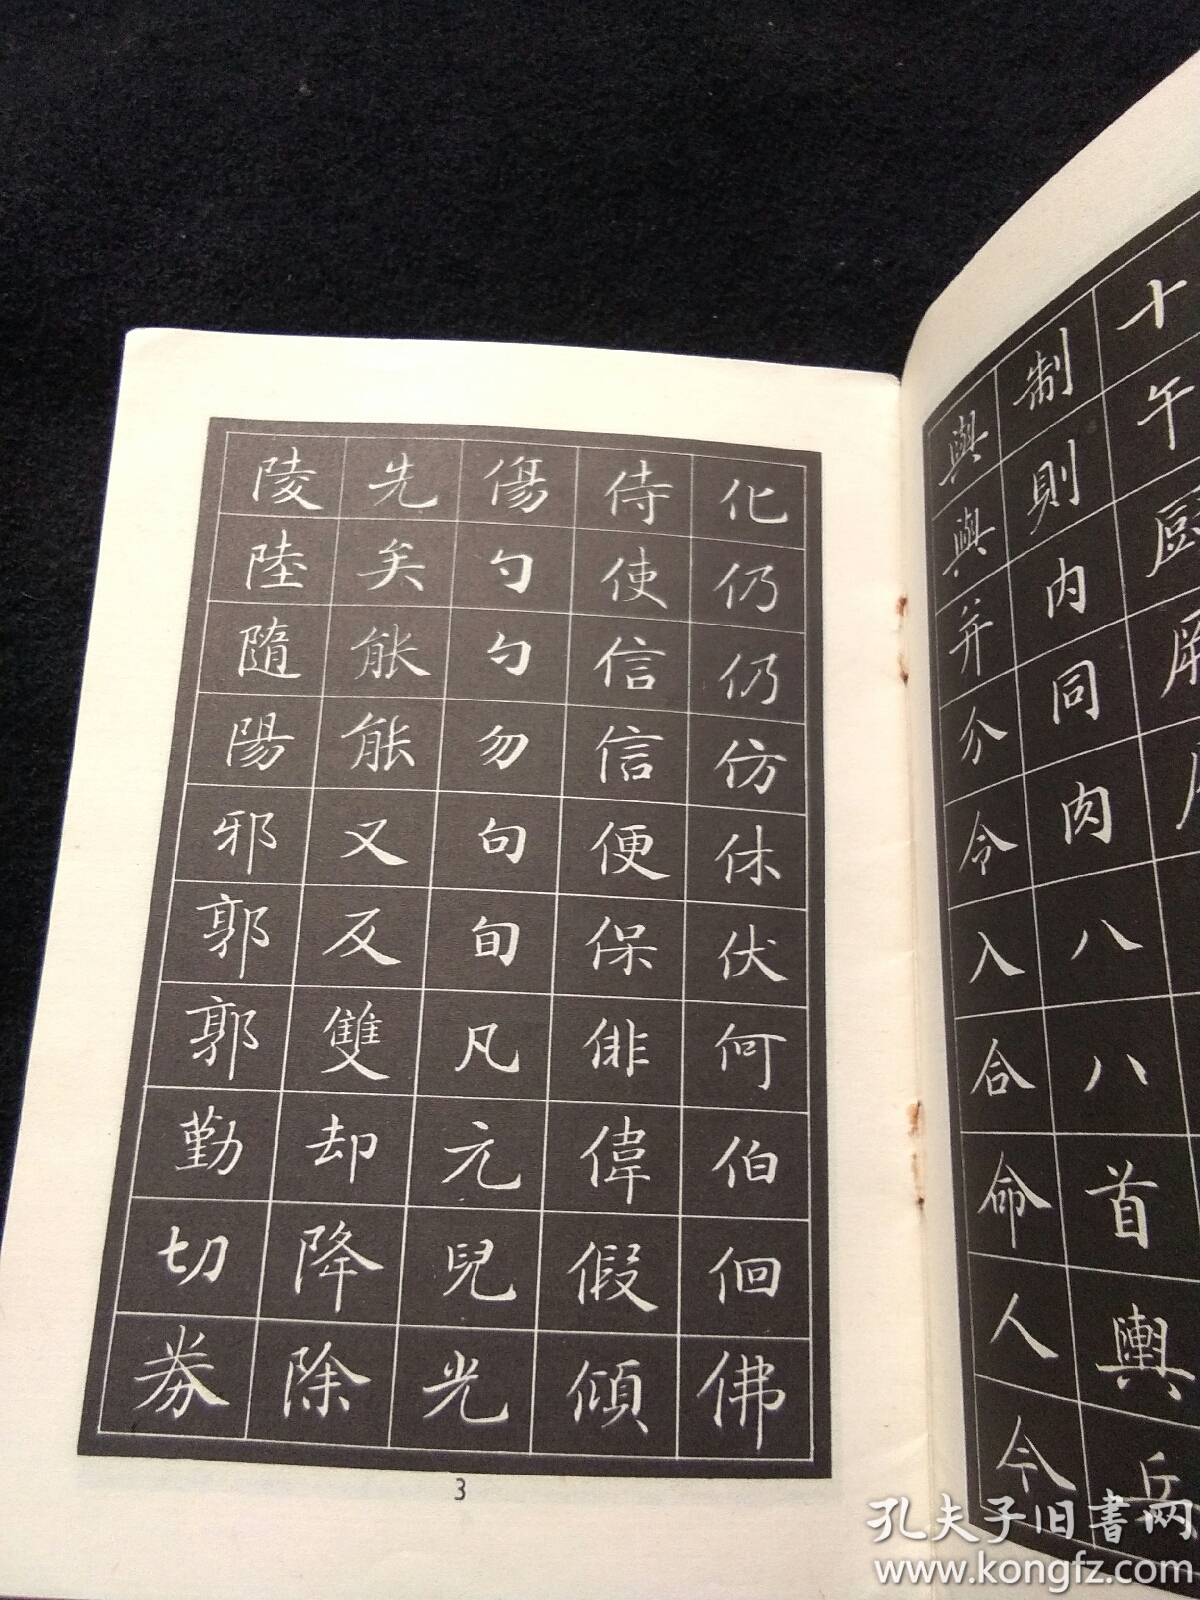 化仍仍仿休伏何伯佪佛
侍使信信便保俳偉假傾
傷勺勺勿句旬凡元兒光
先矣能能又反雙却降除
陵陸隨陽邪郭郭勤切券
3
十午厨
制則內同肉八八首輿兵
與與并分令入合命人今
孔夫子旧書网
www.kongfz.com